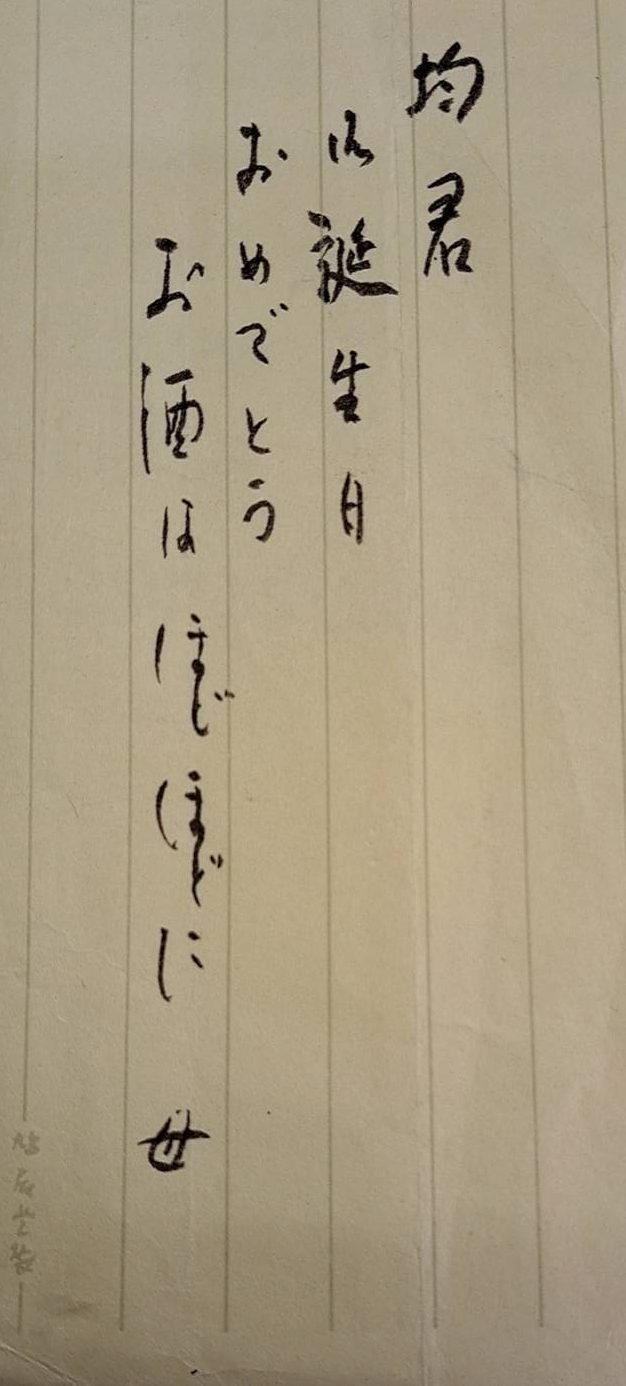 均君
御誕生日
おめでとう
お酒はほどほどに 母